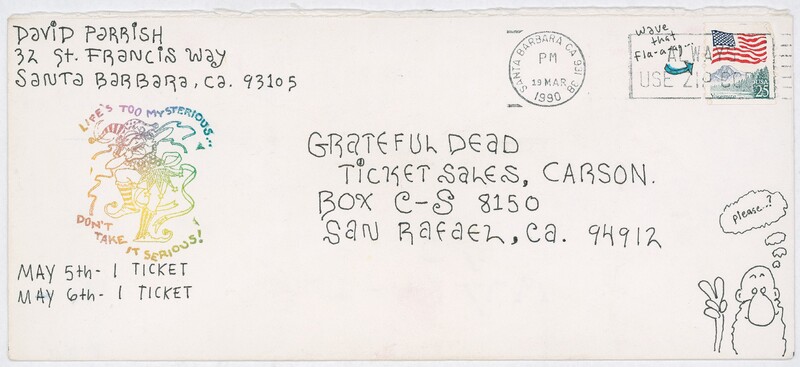 DAVID PARRISH
32 St. FRANCIS WAY
SANTA BARBARA, CA. 93105
LIFE'S TOO MYSTERIOUS...
DON'T TAKE IT SERIOUS!
MAY 5th - 1 TICKET
MAY 6th - 1 TICKET
SANTA BARBARA CA 931
PM
19 MAR
1990
wave
that
fla-a-ag...
ALWAYS
USE ZIP CODE
USA 25
GRATEFUL DEAD
TICKET SALES, CARSON.
BOX C-S 8150
SAN RAFAEL, CA. 94912
please..?